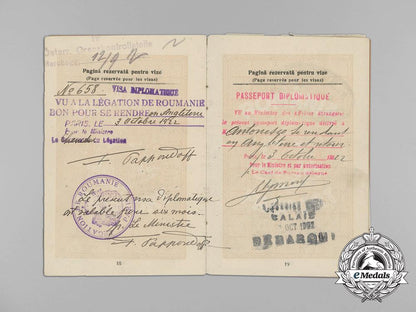 Osterr. Grenzkontrollstelle
12/9
Pagină rezervată pentru vize
(Page reservée pour les visas)
No 658. VISA DIPLOMATIQUE
VU A LA LÉGATION DE ROUMANIE
BON POUR SE RENDRE en Angleterre
PARIS, LE 3 Octobre 1922
Pour le Ministre
Le Secrétaire de Légation
Le présent visa diplomatique
est valable pour six mois.
p. le Ministre
LEGATION ROUMANIE
18
Pagină rezervată pentru vize
(Page reservée pour les visas)
PASSEPORT DIPLOMATIQUE
VU au Ministère des Affaires étrangères
le présent passeport diplomatique délivré à
Antonescu se rendant
en Angleterre et retour
3 Octobre 1922
Pour le Ministre et par autorisation
Le Chef du Bureau
CALAIS
OCT 1922
DÉBARQUÉ
19